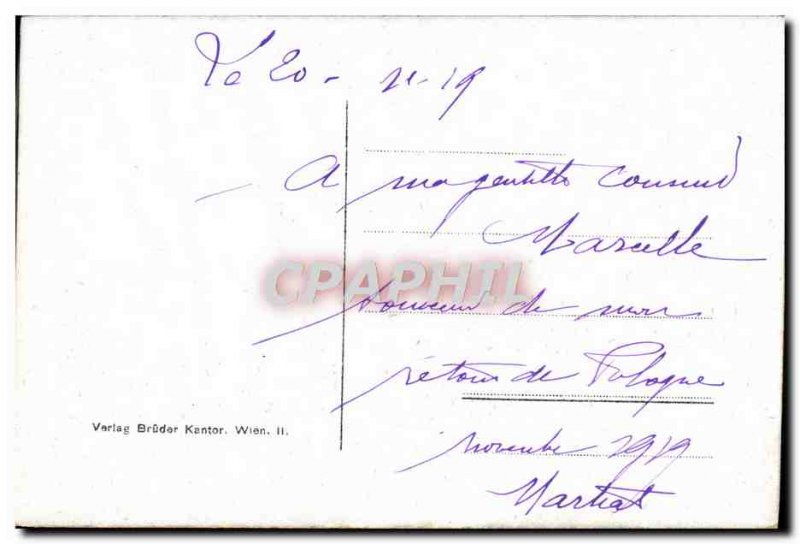 Le 20 - 11-19
A ma gentille Cousine
Marcelle
Souvenir de mon
retour de Pologne
novembre 1919
CPAPHIL
Verlag Brüder Kantor. Wien. II.